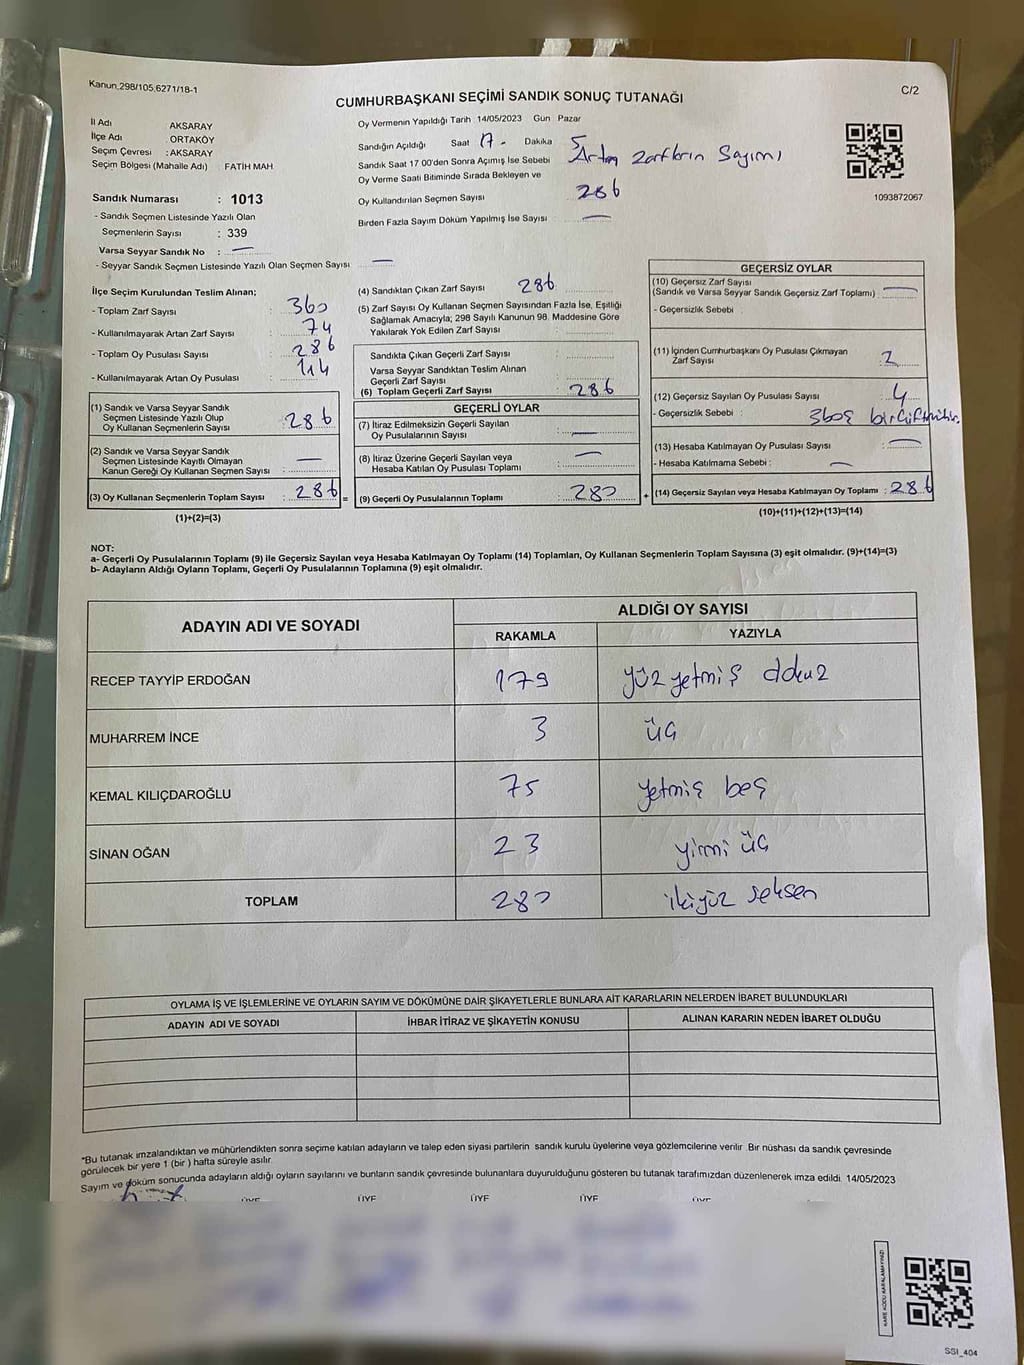 Kanun,298/105,6271/18-1
C/2
CUMHURBAŞKANI SEÇİMİ SANDIK SONUÇ TUTANAĞI
İl Adı AKSARAY
İlçe Adı ORTAKÖY
Seçim Çevresi : AKSARAY
Seçim Bölgesi (Mahalle Adı) : FATİH MAH
Sandık Numarası : 1013
- Sandık Seçmen Listesinde Yazılı Olan
Seçmenlerin Sayısı : 339
Varsa Seyyar Sandık No : —
- Seyyar Sandık Seçmen Listesinde Yazılı Olan Seçmen Sayısı —
Oy Vermenin Yapıldığı Tarih 14/05/2023 Gün Pazar
Sandığın Açıldığı Saat 17 - Dakika
Sandık Saat 17 00'den Sonra Açımış İse Sebebi Artan Zarfların Sayımı
Oy Verme Saati Bitiminde Sırada Bekleyen ve
Oy Kullandırılan Seçmen Sayısı 286
Birden Fazla Sayım Döküm Yapılmış İse Sayısı —
1093872067
İlçe Seçim Kurulundan Teslim Alınan;
- Toplam Zarf Sayısı : 360
- Kullanılmayarak Artan Zarf Sayısı : 74
- Toplam Oy Pusulası Sayısı : 286
- Kullanılmayarak Artan Oy Pusulası : 114
(1) Sandık ve Varsa Seyyar Sandık
Seçmen Listesinde Yazılı Olup
Oy Kullanan Seçmenlerin Sayısı : 286
(2) Sandık ve Varsa Seyyar Sandık
Seçmen Listesinde Kayıtlı Olmayan
Kanun Gereği Oy Kullanan Seçmen Sayısı : —
(3) Oy Kullanan Seçmenlerin Toplam Sayısı : 286 =
(1)+(2)=(3)
(4) Sandıktan Çıkan Zarf Sayısı 286
(5) Zarf Sayısı Oy Kullanan Seçmen Sayısından Fazla İse, Eşitliği
Sağlamak Amacıyla; 298 Sayılı Kanunun 98. Maddesine Göre
Yakılarak Yok Edilen Zarf Sayısı
Sandıkta Çıkan Geçerli Zarf Sayısı
Varsa Seyyar Sandıktan Teslim Alınan
Geçerli Zarf Sayısı
(6) Toplam Geçerli Zarf Sayısı 286
GEÇERLİ OYLAR
(7) İtiraz Edilmeksizin Geçerli Sayılan
Oy Pusulalarının Sayısı —
(8) İtiraz Üzerine Geçerli Sayılan veya
Hesaba Katılan Oy Pusulası Toplamı —
(9) Geçerli Oy Pusulalarının Toplamı : 280 +
GEÇERSİZ OYLAR
(10) Geçersiz Zarf Sayısı
(Sandık ve Varsa Seyyar Sandık Geçersiz Zarf Toplamı) : —
- Geçersizlik Sebebi
(11) İçinden Cumhurbaşkanı Oy Pusulası Çıkmayan
Zarf Sayısı 2
(12) Geçersiz Sayılan Oy Pusulası Sayısı 4
- Geçersizlik Sebebi : 3 boş bir
(13) Hesaba Katılmayan Oy Pusulası Sayısı —
- Hesaba Katılmama Sebebi : —
(14) Geçersiz Sayılan veya Hesaba Katılmayan Oy Toplamı : 286
(10)+(11)+(12)+(13)=(14)
NOT:
a- Geçerli Oy Pusulalarının Toplamı (9) ile Geçersiz Sayılan veya Hesaba Katılmayan Oy Toplamı (14) Toplamları, Oy Kullanan Seçmenlerin Toplam Sayısına (3) eşit olmalıdır. (9)+(14)=(3)
b- Adayların Aldığı Oyların Toplamı, Geçerli Oy Pusulalarının Toplamına (9) eşit olmalıdır.
ADAYIN ADI VE SOYADI
ALDIĞI OY SAYISI
RAKAMLA YAZIYLA
RECEP TAYYİP ERDOĞAN 179 yüz yetmiş dokuz
MUHARREM İNCE 3 üç
KEMAL KILIÇDAROĞLU 75 yetmiş beş
SİNAN OĞAN 23 yirmi üç
TOPLAM 280 ikiyüz seksen
OYLAMA İŞ VE İŞLEMLERİNE VE OYLARIN SAYIM VE DÖKÜMÜNE DAİR ŞİKAYETLERLE BUNLARA AİT KARARLARIN NELERDEN İBARET BULUNDUKLARI
ADAYIN ADI VE SOYADI İHBAR İTİRAZ VE ŞİKAYETİN KONUSU ALINAN KARARIN NEDEN İBARET OLDUĞU
*Bu tutanak imzalandıktan ve mühürlendikten sonra seçime katılan adayların ve talep eden siyasi partilerin sandık kurulu üyelerine veya gözlemcilerine verilir Bir nüshası da sandık çevresinde
görülecek bir yere 1 (bir ) hafta süreyle asılır.
Sayım ve döküm sonucunda adayların aldığı oyların sayılarını ve bunların sandık çevresinde bulunanlara duyurulduğunu gösteren bu tutanak tarafımızdan düzenlenerek imza edildi 14/05/2023
ÜYE ÜYE ÜYE ÜYE ÜYE
SSI_404